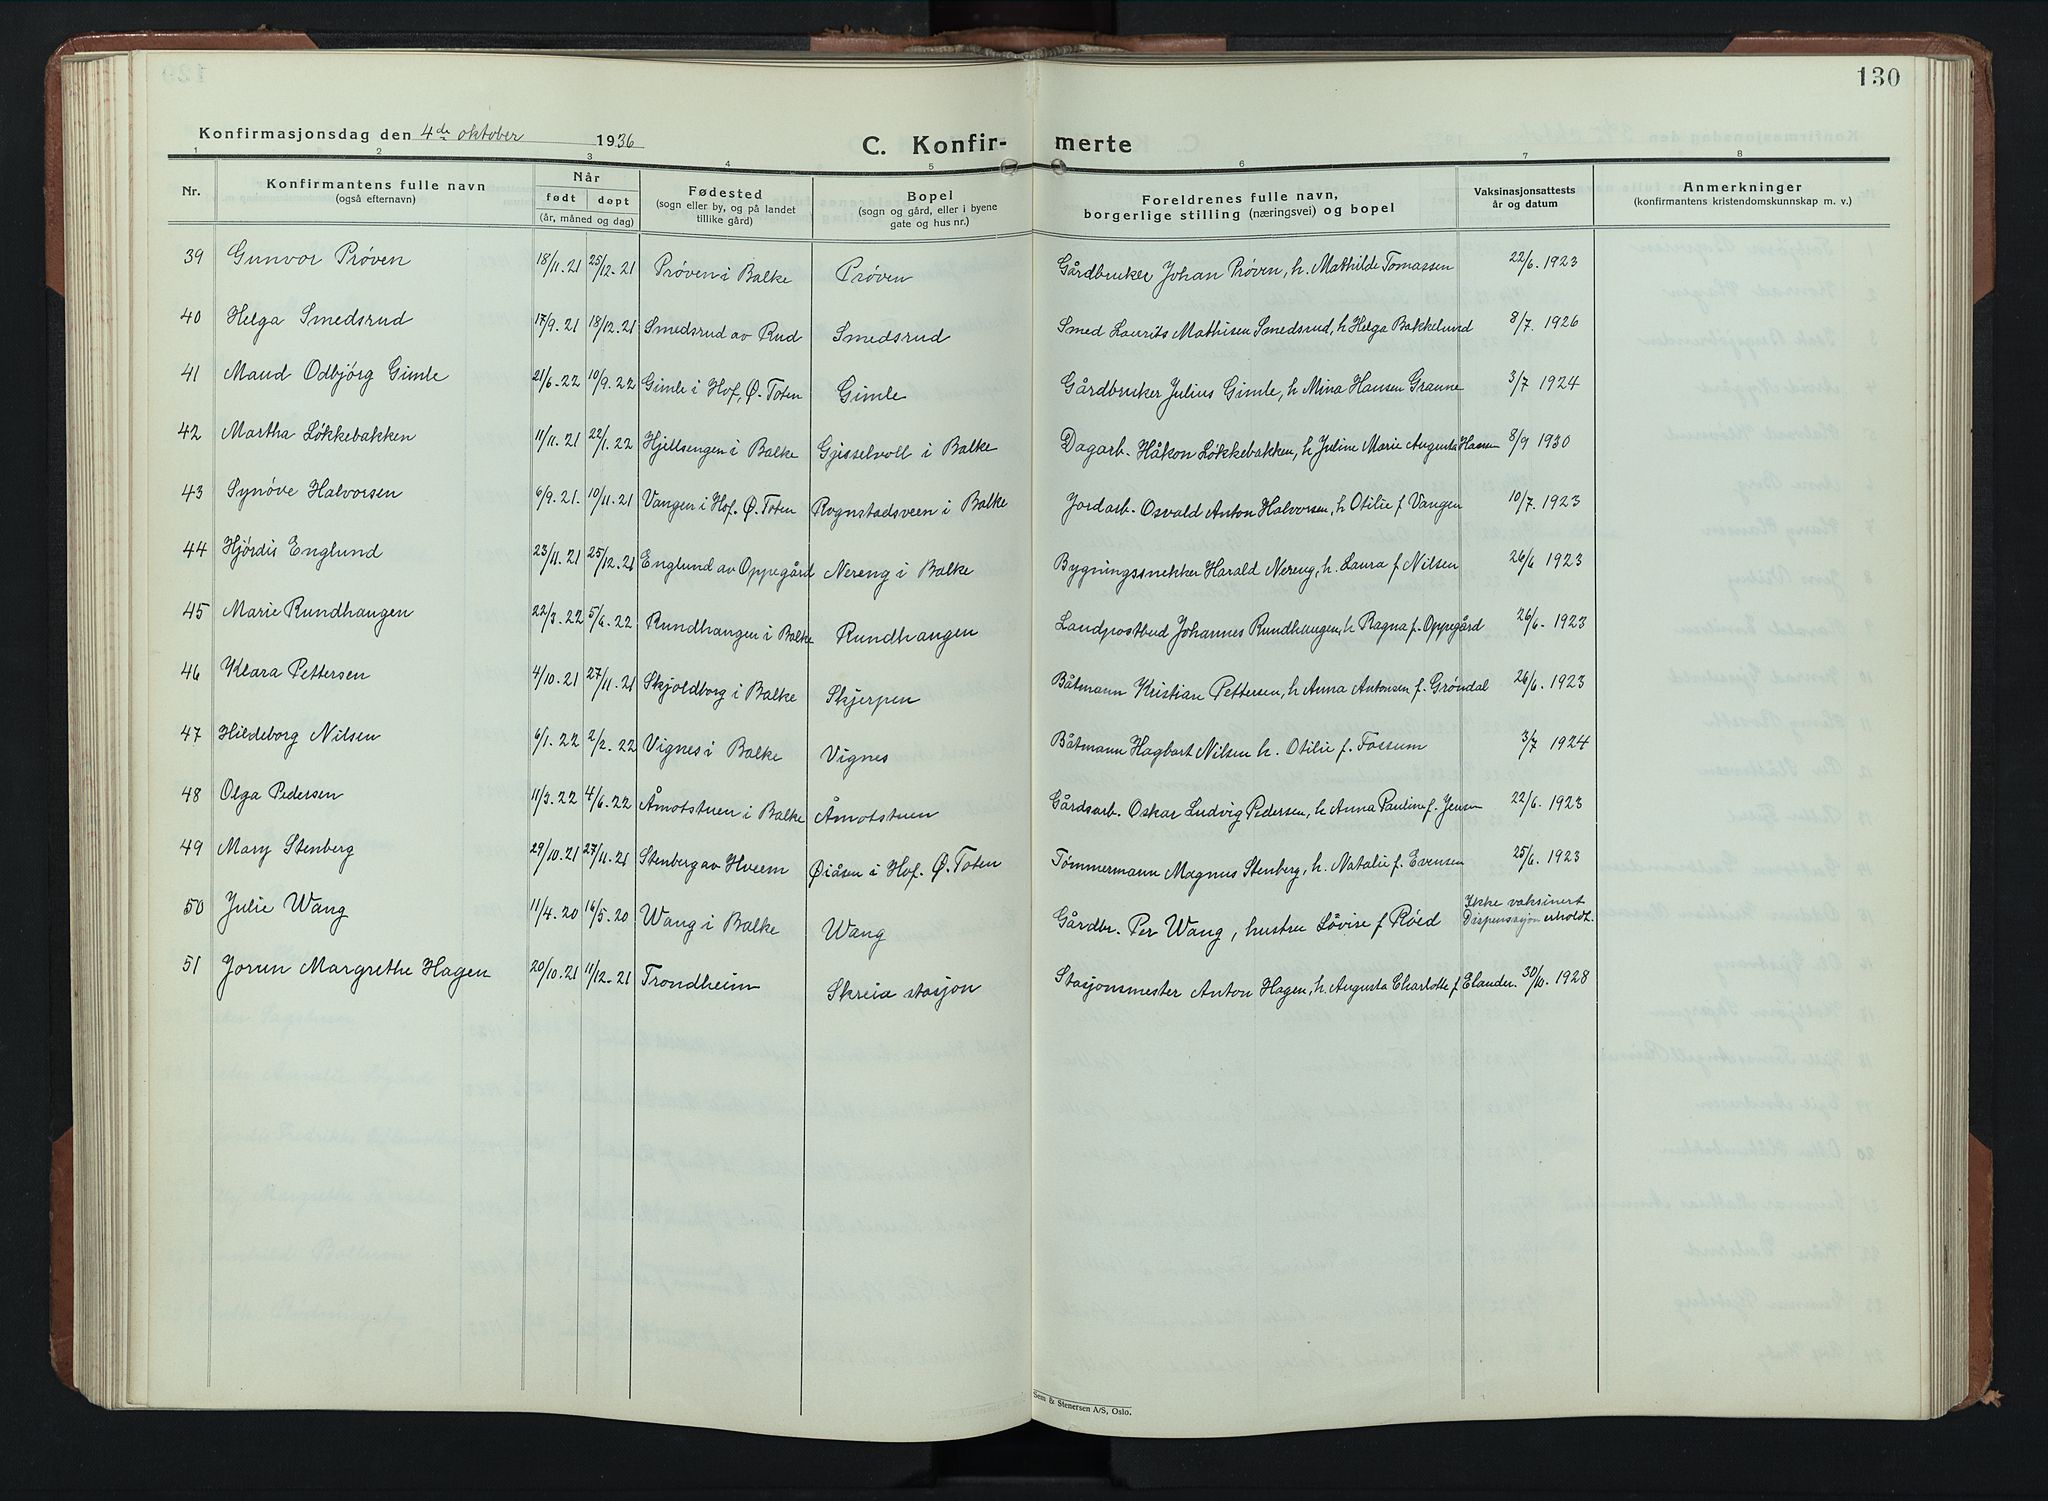 130
Konfirmasjonsdag den 4de oktober 1936
C. Konfir- merte
1 2 3 4 5 6 7 8
Nr. Konfirmantens fulle navn (også efternavn) Når født døpt (år, måned og dag) Fødested (sogn eller by, og på landet tillike gård) Bopel (sogn og gård, eller i byene gate og hus nr.) Foreldrenes fulle navn, borgerlige stilling (næringsvei) og bopel Vaksinasjonsattests år og datum Anmerkninger (konfirmantens kristendomskunnskap m. v.)
39 Gunvor Prøven 18/11.21 25/12.21 Prøven i Balke Prøven Gårdbruker Johan Prøven, h. Mathilde Tomassen 22/6. 1923
40 Helga Smedsrud 17/9.21 18/12.21 Smedsrud av Rud Smedsrud Smed Laurits Mathisen Smedsrud, h Helga Bakkelund 8/7. 1926
41 Maud Odbjörg Gimle 21/6.22 10/9.22 Gimle i Hof, Ø. Toten Gimle Gårdbruker Julius Gimle, h Mina Hansen Graune 3/7 1924
42 Martha Lökkebakken 11/11.21 22/1.22 Hjellsengen i Balke Gjisselvoll i Balke Dagarb. Håkon Lökkebakken, h Juline Marie Augusta Hansen 8/9 1930
43 Synöve Halvorsen 6/9.21. 10/11.21 Vangen i Hof. Ø. Toten Rognstadsveen i Balke Jordarb. Osvald Anton Halvorsen, h Otilie f Vangen 10/7. 1923
44 Hjördis Englund 23/11.21 25/12.21 Englund av Oppegård Nereng i Balke Bygningssnekker Harald Nereng, h. Laura f Nilsen 26/6 1923
45 Marie Rundhaugen 22/3.22 5/6.22 Rundhaugen i Balke Rundhaugen Landpostbud Johannes Rundhaugen, h Ragna f. Oppegård 26/6. 1923
46 Klara Pettersen 4/10.21 27/11.21 Skjoldborg i Balke Skjerpen Båtmann Kristian Pettersen, h Anna Antonsen f. Gröndal 26/6. 1923
47 Hildeborg Nilsen 6/1.22 2/2.22 Vignes i Balke Vignes Båtmann Hagbart Nilsen h. Otilie f. Fossum 3/7 1924
48 Olga Pedersen 11/3.22 4/6.22 Åmotstuen i Balke Åmotstuen Gårdsarb. Oskar Ludvig Pedersen, h Anna Pauline f. Jensen 22/6. 1923
49 Mary Stenberg 29/10.21 27/11.21 Stenberg av Hveem Øiåsen i Hof. Ø. Toten Tömmermann Magnus Stenberg, h. Natalie f. Evensen 25/6. 1923
50 Julie Wang 11/4.20 16/5.20 Wang i Balke Wang Gårdbr. Per Wang, hustru Lövise f Röed Ikke vaksinert Dispensasjon erholdt.
51 Jorun Margrethe Hagen 20/10.21 11/12.21 Trondheim Skreia stasjon Stasjonsmester Anton Hagen, h. Augusta Charlotte f Elander. 30/10. 1928
Sem & Stenersen A/S, Oslo.